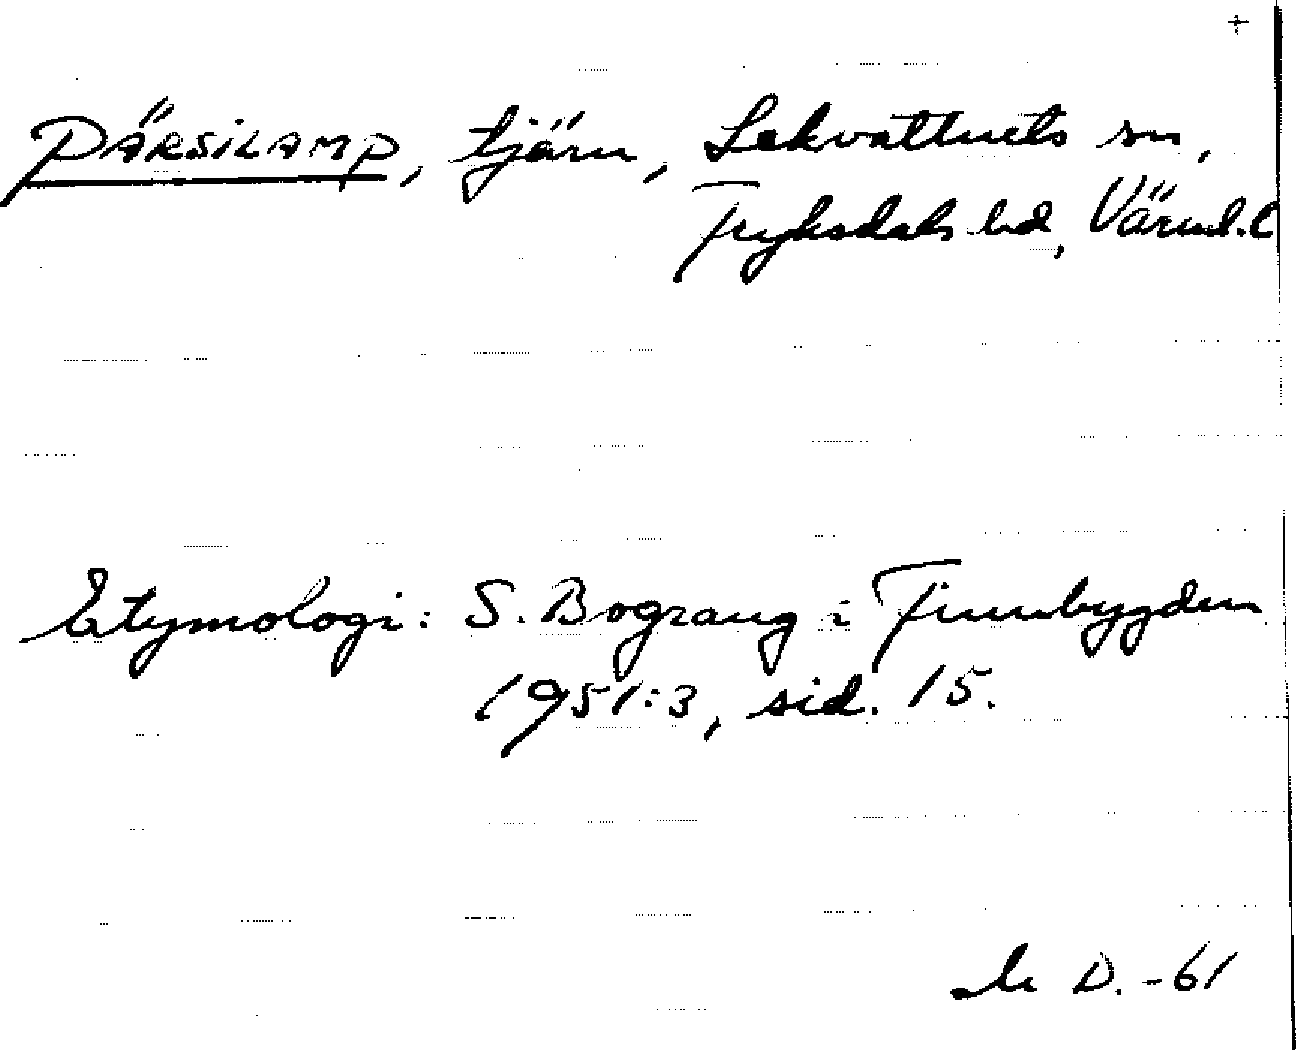 +
PÄRSILAMP, tjärn, Lekvattnets sn,
Fryksdals hd, Värml. l
Etymologi: S. Bograng i Finnbygden
1951:3, sid. 15.
D. -61